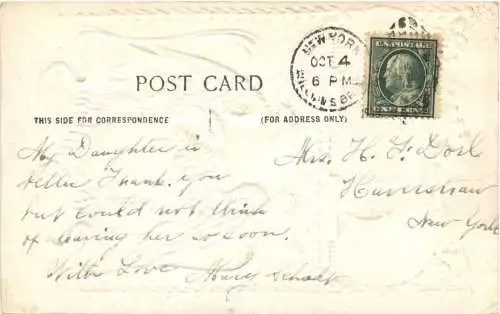 NEW YORK
OCT 4
6 PM
U.S. POSTAGE
ONE CENT
POST CARD
THIS SIDE FOR CORRESPONDENCE
(FOR ADDRESS ONLY)
My Daughter is
better Thank you
but could not think
of leaving her so soon.
With Love Mary
Mrs. H. F.
Haverstraw
New York